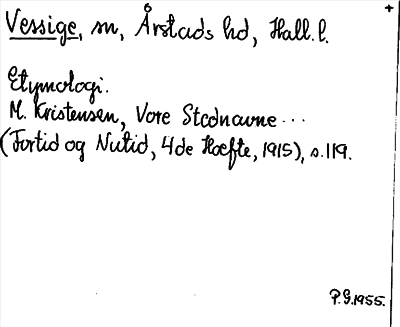 Vessige, sn, Årstads hd, Hall. l.
Etymologi.
M. Kristensen, Vore Stednavne...
(Fortid og Nutid, 4de Hæfte, 1915), s. 119.
P.G. 1955.